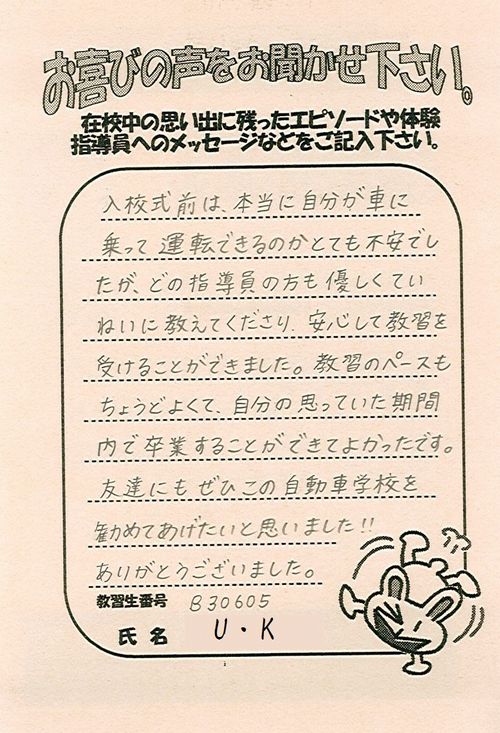 お喜びの声をお聞かせ下さい。
在校中の思い出に残ったエピソードや体験
指導員へのメッセージなどをご記入下さい。
入校式前は、本当に自分が車に
乗って運転できるのかとても不安でし
たが、どの指導員の方も優しくてい
ねいに教えてくださり、安心して教習を
受けることができました。教習のペースも
ちょうどよくて、自分の思っていた期間
内で卒業することができてよかったです。
友達にもぜひこの自動車学校を
勧めてあげたいと思いました!!
ありがとうございました。
教習生番号 B30605
氏名 U・K